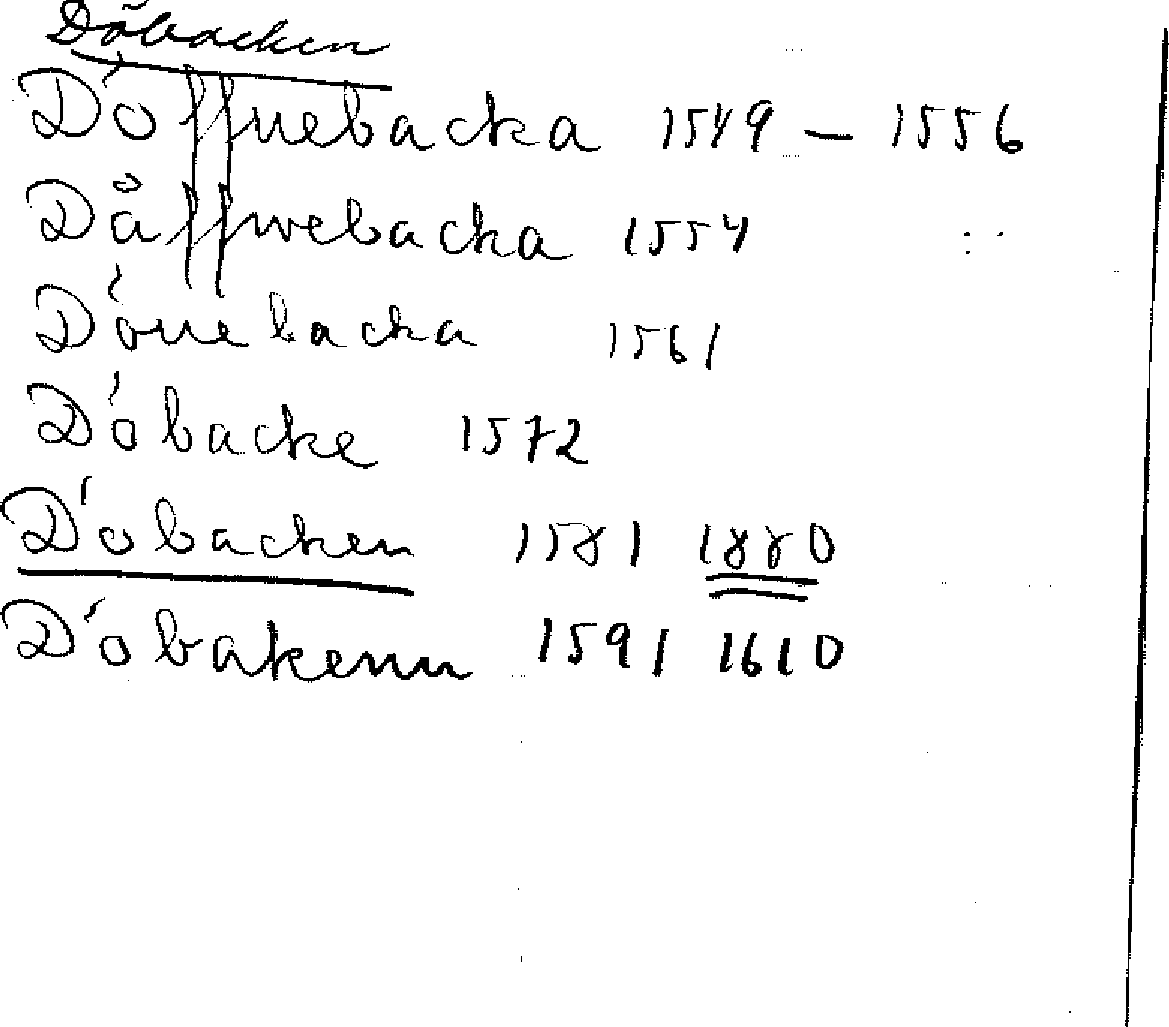 Döbacken
Döffnebacka 1549 — 1556
Dåffwebacka 1554
Dönebacka 1561
Döbacke 1572
Döbacken 1581 1880
Döbakenn 1591 1610